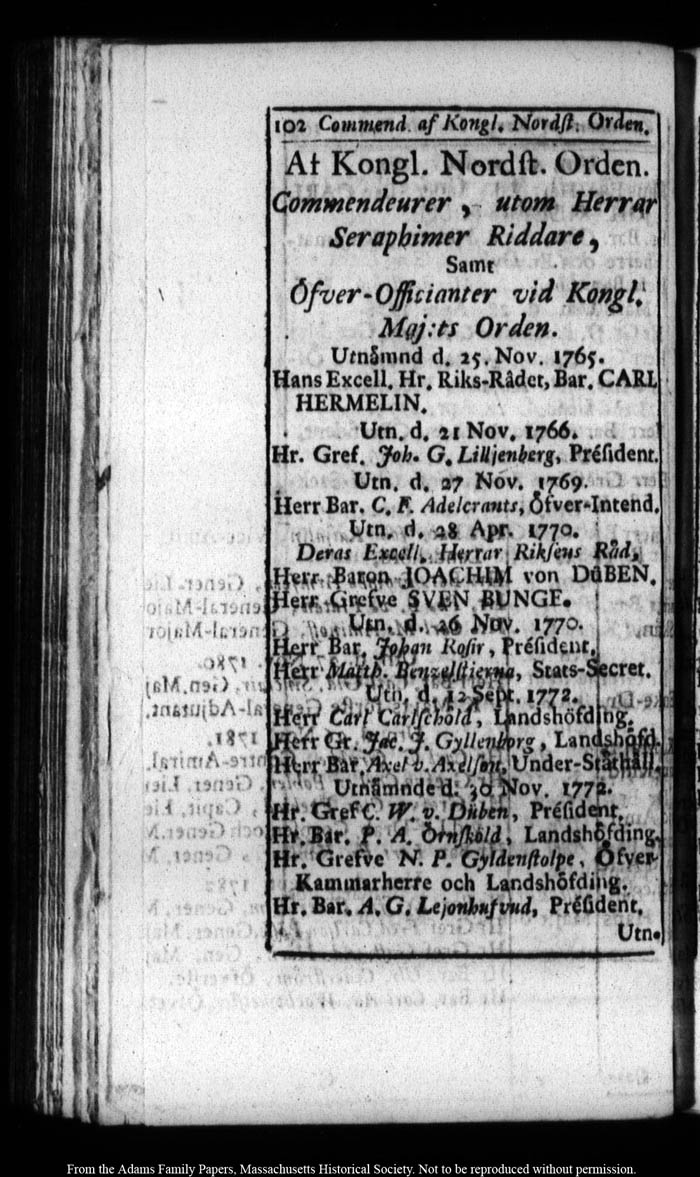 102 Commend. af Kongl. Nordſt. Orden.
Af Kongl. Nordſt. Orden.
Commendeurer, utom Herrar
Seraphimer Riddare,
Samt
Öfver-Officianter vid Kongl.
Maj:ts Orden.
Utnåmnd d. 25. Nov. 1765.
Hans Excell. Hr. Riks-Rådet, Bar. CARL
HERMELIN.
Utn. d. 21 Nov. 1766.
Hr. Gref. Joh. G. Lilljenberg, Préſident.
Utn. d. 27 Nov. 1769.
Herr Bar. C. F. Adelcrants, Öfver-Intend.
Utn. d. 28 Apr. 1770.
Deras Excell. Herrar Rikſens Råd,
Herr Baron JOACHIM von DůBEN.
Herr Grefve SVEN BUNGE.
Utn. d. 26 Nov. 1770.
Herr Bar. Johan Roſir, Préſident.
Herr Matth. Benzelſtierna, Stats-Secret.
Utn. d. 12 Sept. 1772.
Herr Carl Carlſchöld, Landshöfding.
Herr Gr. Jac. J. Gyllenborg, Landshöfd.
Herr Bar. Axel v. Axelſon, Under-Ståthåll.
Utnåmnde d. 30 Nov. 1772.
Hr. Gref C. W. v. Důben, Préſident.
Hr. Bar. P. A. Örnſköld, Landshöfding.
Hr. Grefve N. P. Gyldenſtolpe, Öfver-
Kammarherre och Landshöfding.
Hr. Bar. A. G. Lejonhufvud, Préſident.
Utn.
From the Adams Family Papers, Massachusetts Historical Society. Not to be reproduced without permission.